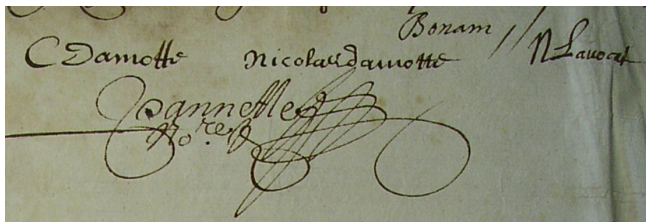 Bonam
C Damotte Nicolas damotte N Lavocat
Jannelle
No.re